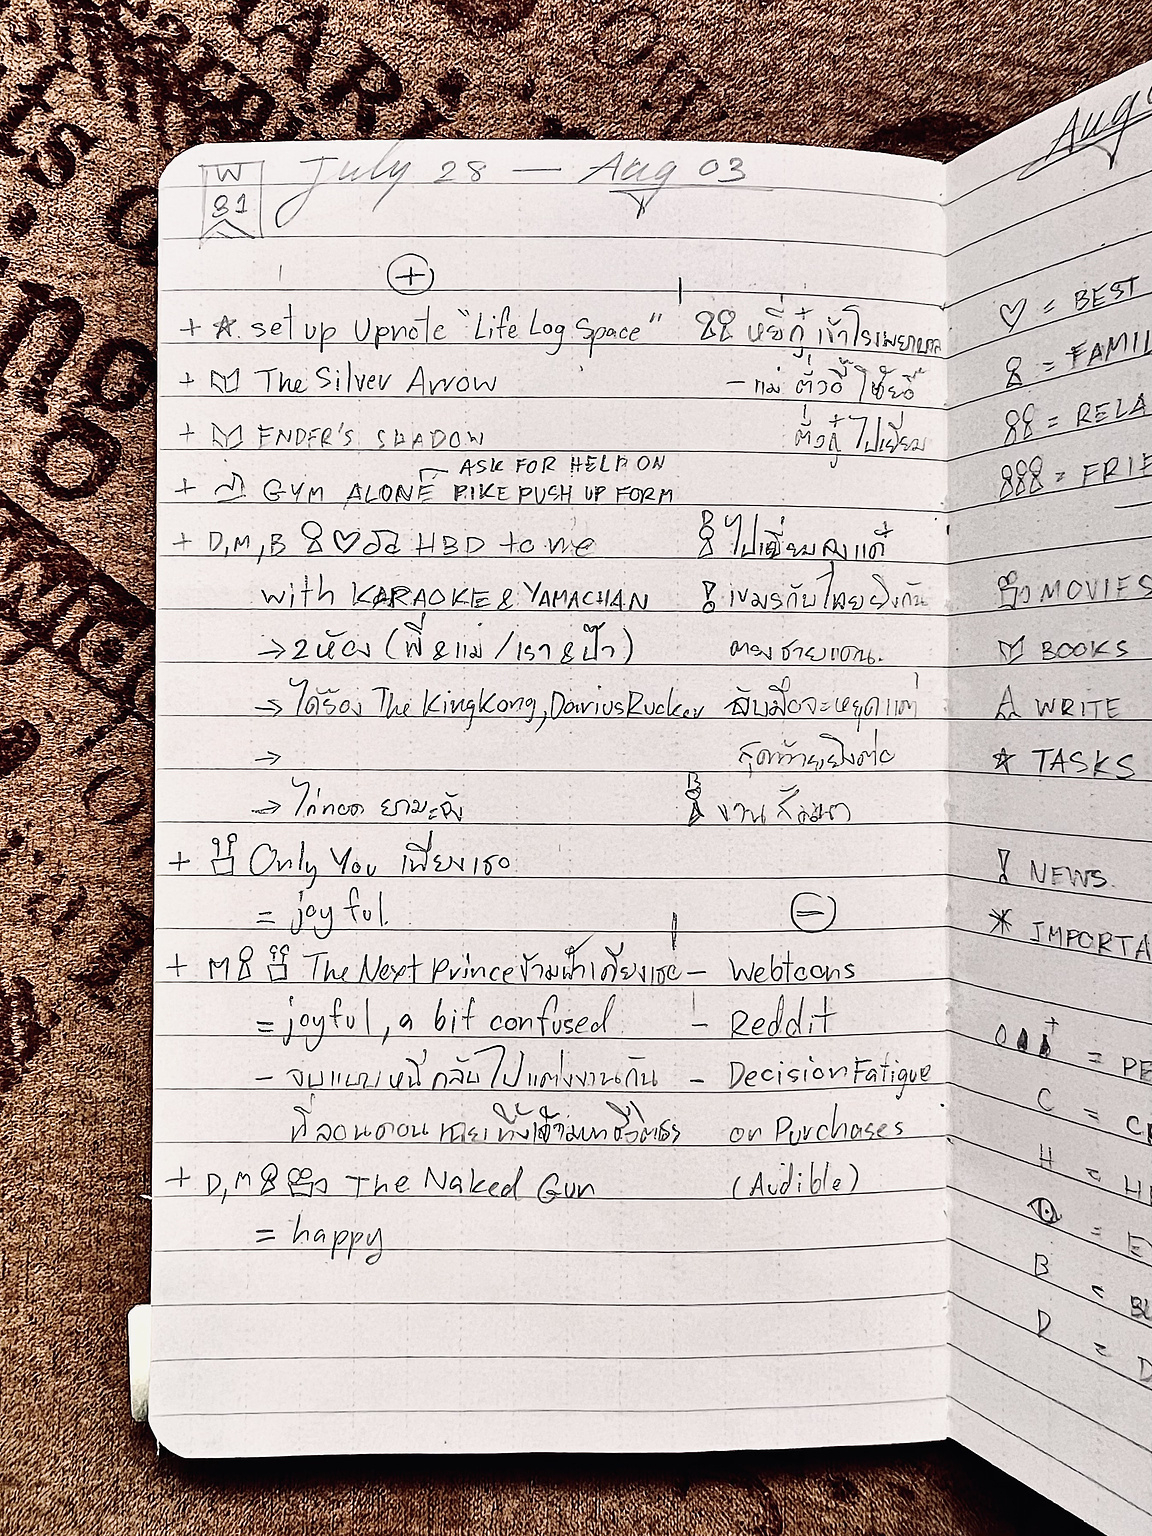 W 31
July 28 — Aug 03
+
+ ☆ set up Upnote "Life Log Space"
+ The Silver Arrow
+ ENDER'S SHADOW
ASK FOR HELP ON
+ GYM ALONE PIKE PUSH UP FORM
+ D, M, B ♡ HBD to me
with KARAOKE & YAMACHAN
→ 2 ห้อง (พี่ & แม่ / เรา & ป๊า)
→ ได้ร้อง The KingKong, Darius Rucker
→
→ ไก่ทอด ยามะจัง
+ Only You เพียงเธอ
= joyful.
+ M The Next Prince ข้ามฟ้าเคียงเธอ
= joyful, a bit confused
- จบแบบหนี กลับไปแต่งงานกัน
ที่ลอนดอน
+ D, M The Naked Gun
= happy
หยี่กู๋ เข้าโรงพยาบาล
- แม่
ไปเยี่ยม
B ไปเยี่ยม
! เขมรกับไทยยิงกัน
ตรงชายแดน.
จะหยุดแต่
สุดท้ายยิงต่อ
B งานสัมมนา
−
- Webtoons
- Reddit
- Decision Fatigue
on Purchases
(Audible)
Aug
♡ = BEST
= FAMIL
= RELA
= FRIE
MOVIES
BOOKS
A WRITE
☆ TASKS
! NEWS.
* IMPORTA
+ = PE
C =
H = H
= E
B = BL
D = D